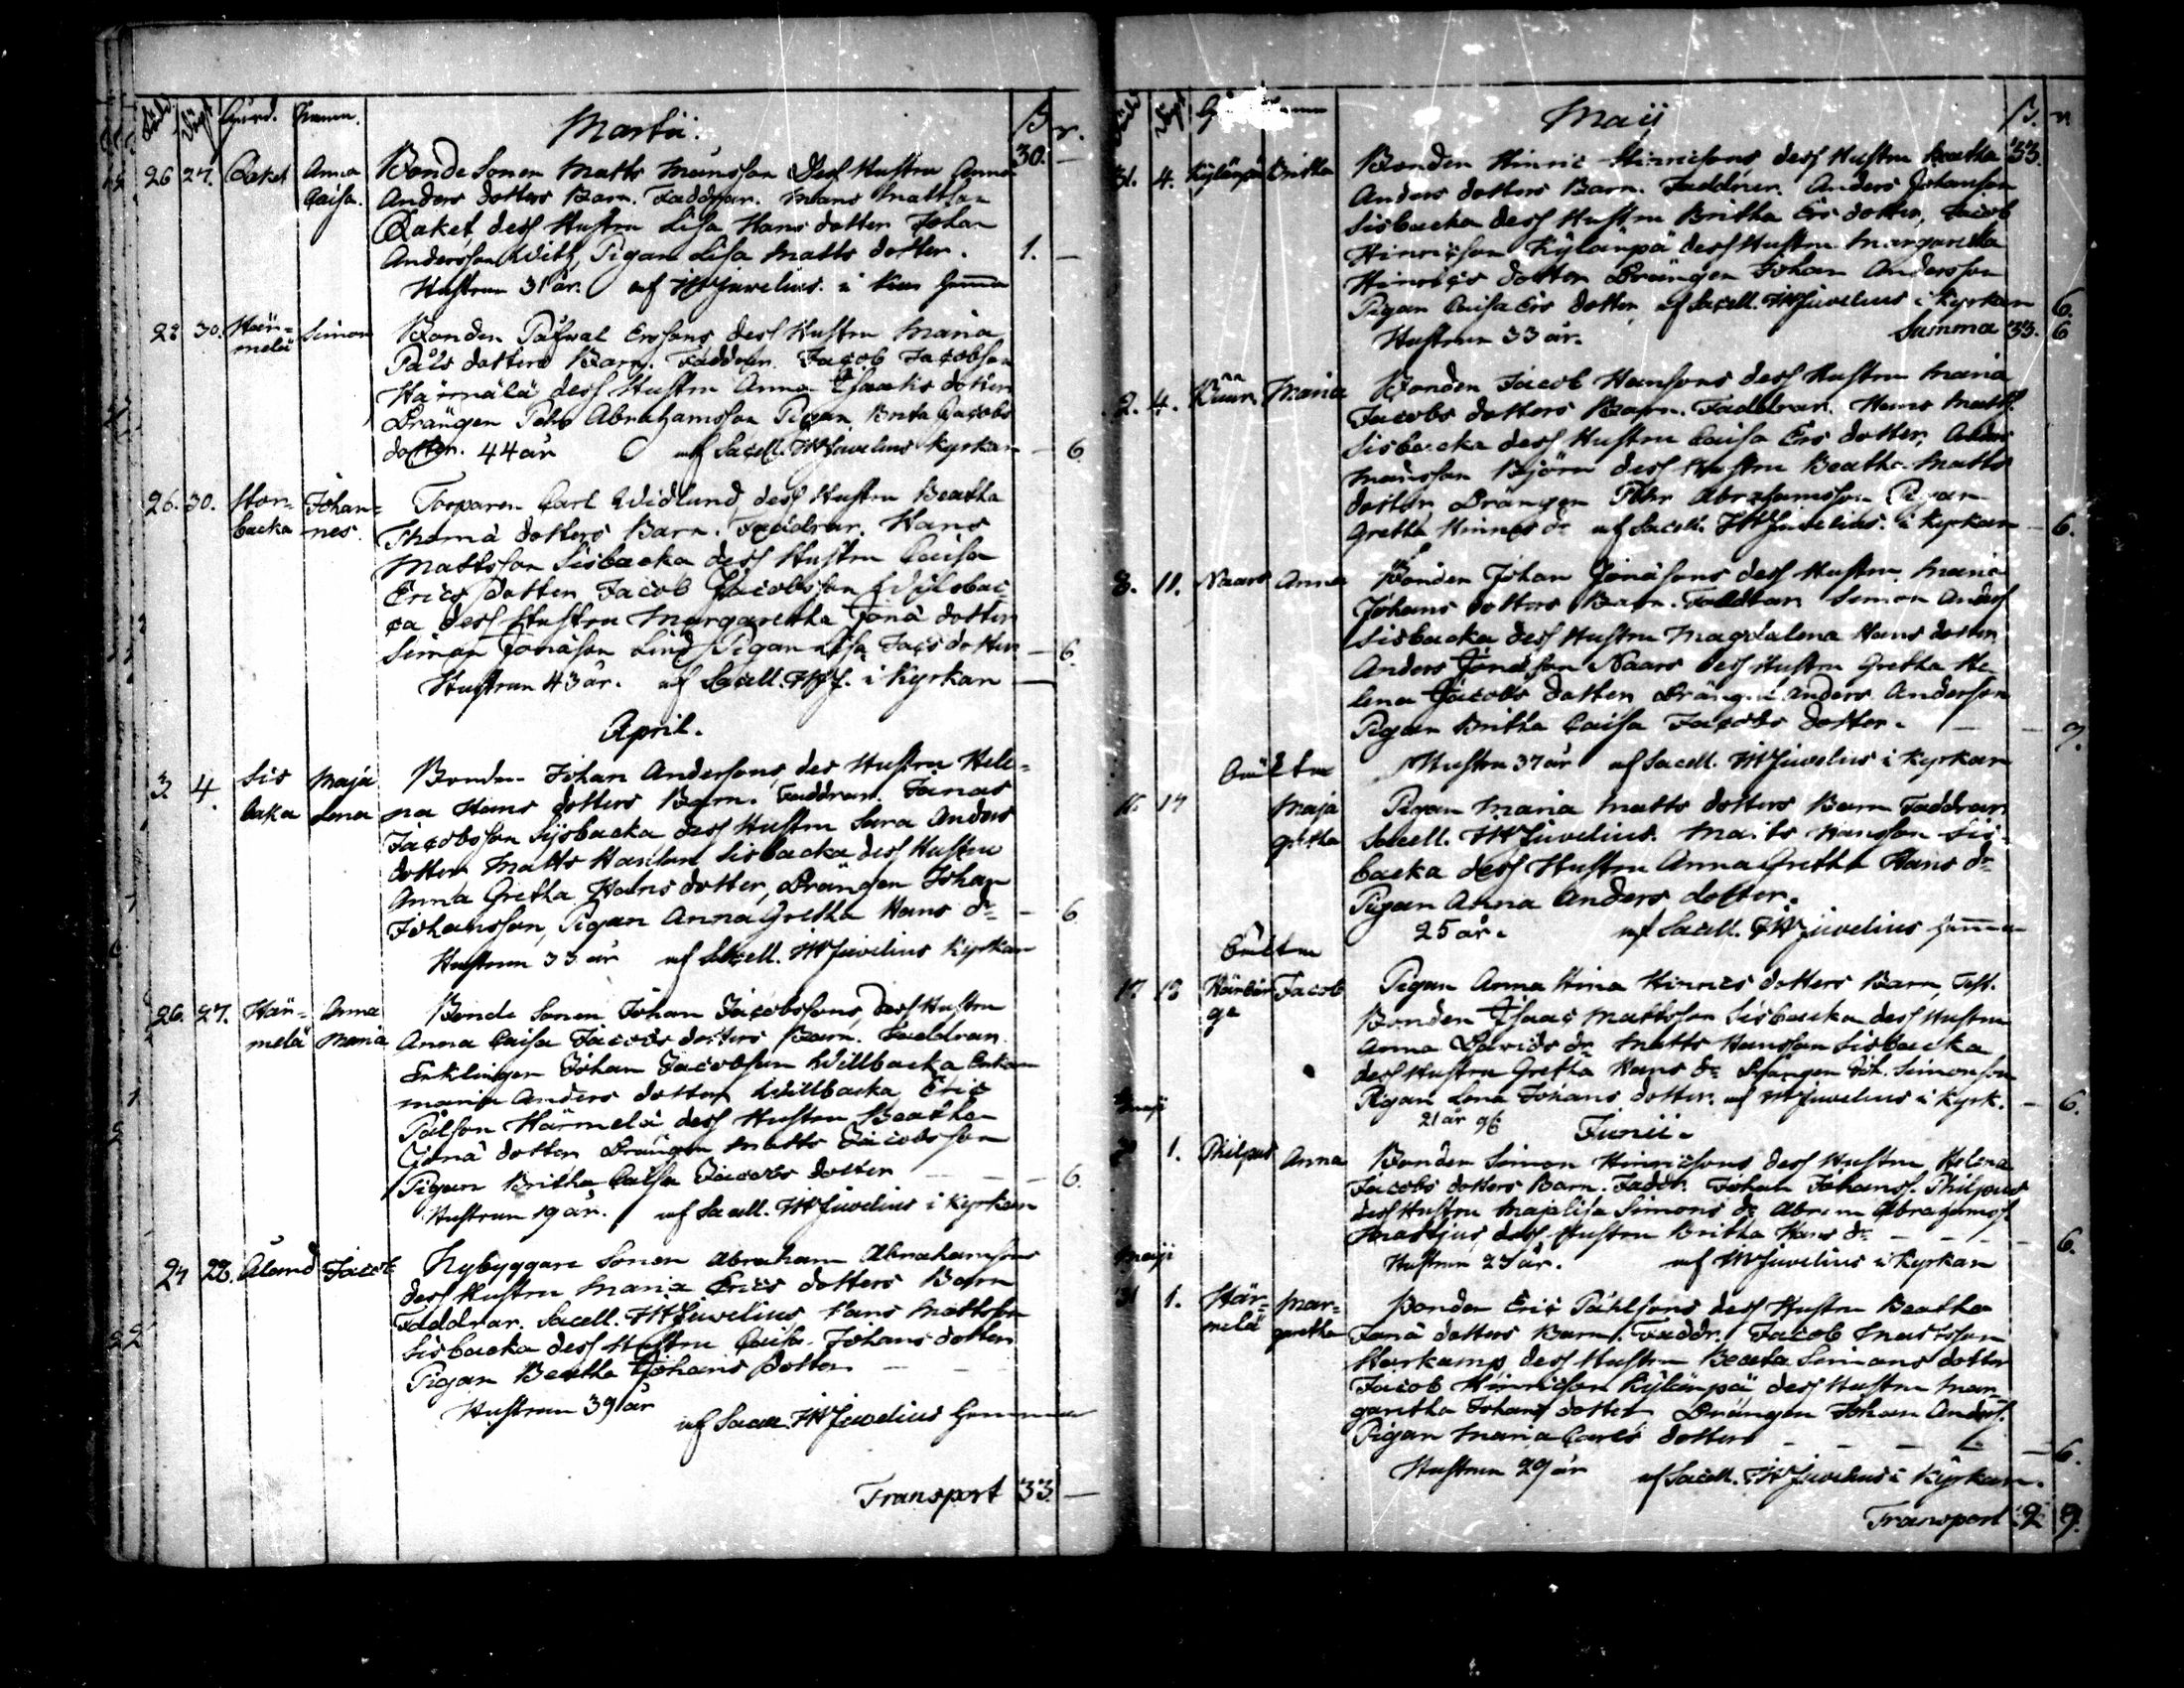 Född. Döpt Gård. Namn. Martii. ß r.
30. —
26 27. Caket Anna Caisa. Bonde Sonen Matts Månsson Dess Hustru Anna
Anders dotters Barn. Faddrar. Måns Mattson
Caket dess Hustru Lisa Hans dotter Johan
Andersson Witz, Pigan Lisa Matts dotter. 1. —
Hustrun 31 år. af JWJuvelius. i
28 30. Härmelä Simon Bonden Påhwal Erssons dess Hustru Maria
Påls dotters Barn. Faddrar. Jacob Jacobsson
Härmälä dess Hustru Anna Isaacks dotter
Drängen Pehr Abrahamsson Pigan Brita Jacobs
dotter. 44 år af Sacell. JWJuvelius Kyrkan — 6
26. 30. Storbacka Johannes. Torparen Carl Widlund, dess Hustru Beatha
Thomä dotters Barn. Faddrar. Hans
Mattsson Sisbacka dess Hustru Caisa
Erics dotter Jacob Jacobsson
ca dess Hustru Margaretha Jonä dotter
Simon Jonäson Lind Pigan Lisa Jacs dotter — 6.
Hustrun 43 år. af Sacell. JWJ. i Kyrkan —
April.
3. 4. Sisbaka Maja Lena Bonden Johan Anderssons des Hustru Hele=
na Hans dotters Barn. Faddrar. Jonas
Jacobsson Sisbacka dess Hustru Sara Anders
dotter Matts Hanson Sisbacka dess Hustru
Anna Gretha Hans dotter, Drängen Johan
Johansson, Pigan Anna Gretha Hans dr — 6
Hustrun 33 år af Sacell. JWJuvelius Kyrkan
26. 27. Härmelä Anna Maria Bonde Sonen Johan Jacobssons, dess Hustru
Anna Caisa Jacobs dotters Barn. Faddrar.
Enklingen Johan Jacobsson Willbacka Enkan
Maria Anders dotter Willbacka, Eric
Pålson Härmelä dess Hustru Beatha
Jonä dotter Drängen Matts Jacobsson
Pigan Britha Caisa Jacobs dotter — — — 6.
Hustrun 19 år. af Sacell. JWJuvelius i Kyrkan
24 28. Åland Jacob Nybyggare Sonen Abraham Abrahamsons
dess Hustru Maria Erics dotters Barn
Faddrar. Sacell. JWJuvelius, Hans Mattsson
Sisbacka dess Hustru Caisa Johans dotter
Pigan Beatha Johans dotter — —
Hustrun 39 år
af Sacell. JWJuvelius
Transport 33 —
Maij ß. r.
31. 4. Kylänpä Britha Bonden Hinric Hinricsons dess Hustru Beatha 33.
Anders dotters Barn. Faddrar. Anders Johanson
Sisbacka dess Hustru Britha Ers dotter, Jacob
Hinricsson Kylänpä dess Hustru Margaretha
Hinrics dotter Drängen Johan Andersson
Pigan Caisa Ers dotter af Sacell. JWJuvelius i Kyrkan 6.
Hustrun 33 år. Summa 33. 6
2. 4. Maria Bonden Jacob Hansons dess Hustru Maria
Jacobs dotters Barn. Faddrar. Hans Matts.
Sisbacka dess Hustru Caisa Ers dotter, Anders
Månsson Björn dess Hustru Beatha Matts
dotter, Drängen Pehr Abrahamsson Pigan
Gretha Hinrics dr af Sacell. JWJuvelius. i Kyrkan — 6.
8. 11. Naars Anna Bonden Johan Jonäsons dess Hustru Maria
Johans dotters Barn. Faddrar Simon Anders
Sisbacka dess Hustru Magdalena Hans dotter
Anders Jonässon Naars dess Hustru Gretha He
lena Jacobs dotter Drängen Anders Anderson
Pigan Britha Caisa Jacobs dotter. — — 9.
Hustru 37 år af Sacell. JWJuvelius i Kyrkan
14 Maja gretha Pigan Maria Matts dotters Barn Faddrar
Sacell. JWJuvelius. Matts Hansson Sis=
backa dess Hustru Anna Gretha Hans dr
Pigan Anna Anders dotter.
25 år. af Sacell. JWJuvelius
17 18 Jacob Pigan Anna Stina Hinrics dotters Barn, Test.
Bonden Isaac Mattsson Sisbacka dess Hustru
Anna Davids dr Matts Hansson Sisbacka
dess Hustru Gretha Hans dr Drängen Joh. Simonsson
Maji Pigan Lena Johans dotter. af JWJuvelius i Kyrk. — 6.
21 år
Junii.
1. Philpus Anna Bonden Simon Hinricsons dess Hustru Helena
Jacobs dotters Barn. Faddr. Johan Johanss. Philpus
dess Hustru Majalisa Simons dr Abram Abrahamss.
Mattjus dess Hustru Britha Hans dr — — — 6.
Maji Hustrun 25 år. af JWJuvelius i Kyrkan
31 1. Härmelä Margaretha Bonden Eric Påhlsons dess Hustru Beatha
Jonä dotters Barn. Faddr. Jacob Mattsson
Storkamp dess Hustru Beata Simons dotter
Jacob Hinricson Kylänpä dess Hustru Mar=
garetha Johans dotter Drängen Johan Anders.
Pigan Maria Carls dotter — — — 6.
Hustrun 29 år af Sacell. JWJuvelius i Kyrkan.
Transport 2 9.